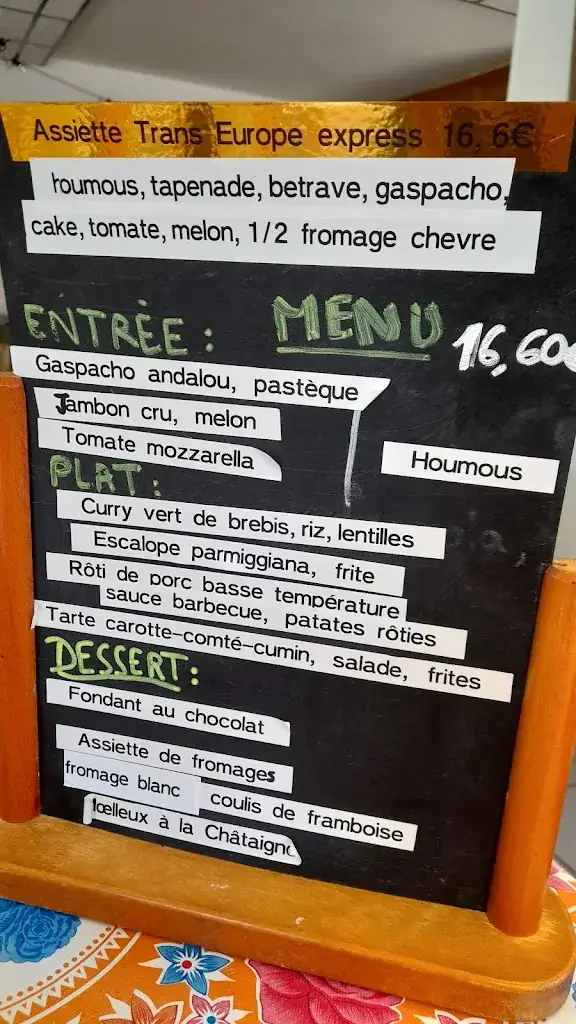 Assiette Trans Europe express 16,6€
houmous, tapenade, betrave, gaspacho,
cake, tomate, melon, 1/2 fromage chevre
ENTRÈE : MENU 16,60€
Gaspacho andalou, pastèque
Jambon cru, melon
Tomate mozzarella
Houmous
PLAT :
Curry vert de brebis, riz, lentilles
Escalope parmiggiana, frite
Rôti de porc basse température
sauce barbecue, patates rôties
Tarte carotte-comté-cumin, salade, frites
DESSERT :
Fondant au chocolat
Assiette de fromages
fromage blanc coulis de framboise
Moelleux à la Châtaigne